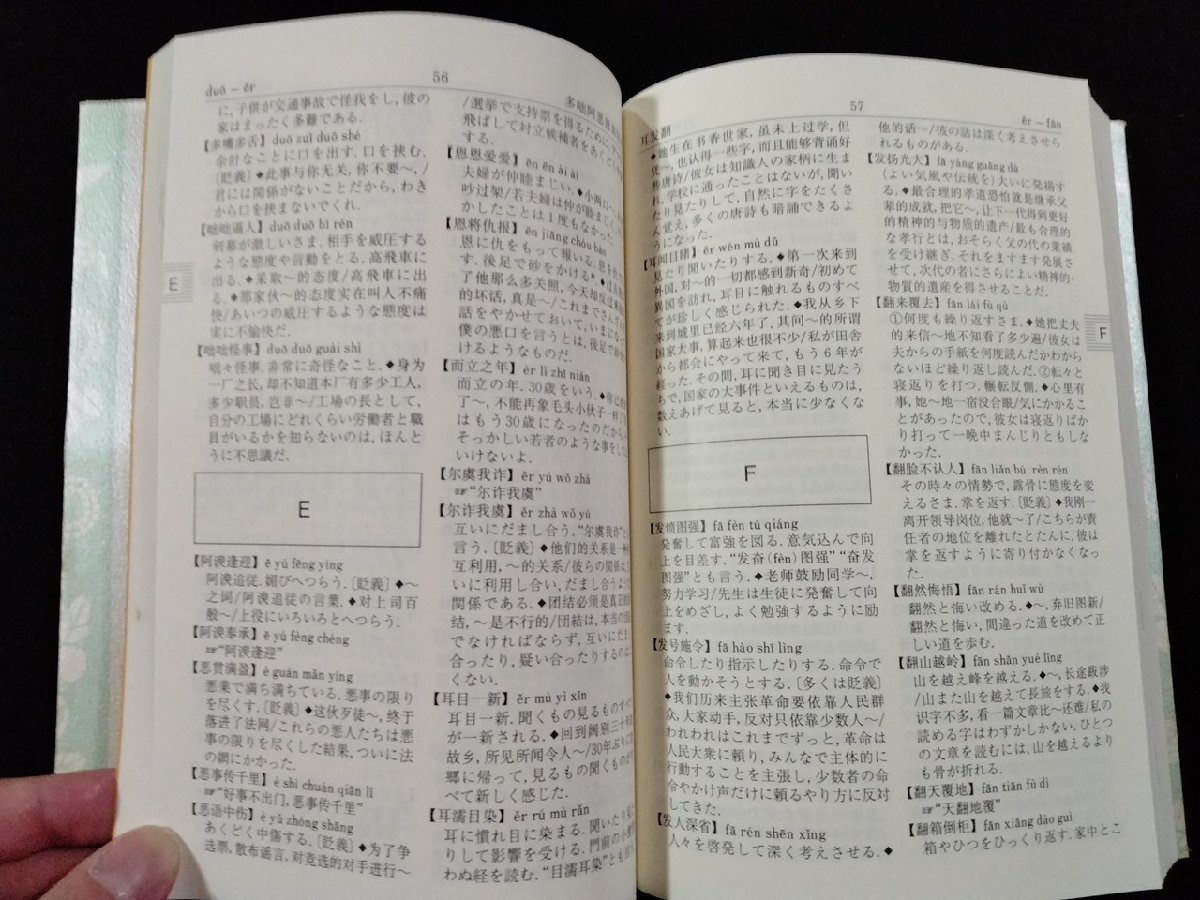 duō – ěr
56
に, 子供が交通事故で怪我をし, 彼の
家はまったく多難である.
【多嘴多舌】duō zuǐ duō shé
余計なことに口を出す. 口を挟む.
〔貶義〕◆此事与你无关, 你不要～, /
君には関係がないことだから, わき
から口を挟まないでくれ.
【咄咄逼人】duō duō bī rén
剣幕が激しいさま. 相手を威圧する
ような態度や言動をとる. 高飛車に
出る. ◆采取～的态度/高飛車に出
る. ◆那家伙～的态度实在叫人不痛
快/あいつの威圧するような態度は
実に不愉快だ.
【咄咄怪事】duō duō guài shì
咄々怪事. 非常に奇怪なこと. ◆身为
一厂之长, 却不知道本厂有多少工人,
多少职员, 岂非～/工場の長として,
自分の工場にどれくらい労働者と職
員がいるかを知らないのは, ほんと
うに不思議だ.
E
E
【阿谀逢迎】ē yú féng yíng
阿諛追従. 媚びへつらう. 〔貶義〕◆～
之词/阿諛追従の言葉. ◆对上司百
般～/上役にいろいろとへつらう.
【阿谀奉承】ē yú fèng chéng
☞“阿谀逢迎”
【恶贯满盈】è guàn mǎn yíng
悪業で満ち満ちている. 悪事の限り
を尽くす. 〔貶義〕◆这伙歹徒～, 终于
落进了法网/これらの悪人たちは悪
事の限りを尽くした結果, ついに法
の網にかかった.
【恶事传千里】è shì chuán qiān lǐ
☞“好事不出门, 恶事传千里”
【恶语中伤】è yǔ zhòng shāng
あくどく中傷する. 〔貶義〕◆为了争
选票, 散布谣言, 对竞选的对手进行～
/選挙で支持票を得るために
飛ばして対立候補者をあくどく
する.
【恩恩爱爱】ēn ēn ài ài
夫婦が仲睦まじい. ◆小两口～,
吵过架/若夫婦は仲が睦まじく
かしたことは1度もなかった.
【恩将仇报】ēn jiāng chóu bào
恩に仇をもって報いる.
す. 後足で砂をかける.
了他那么多关照, 今天却反过来
的坏话, 真是～/これまでさんざん
話をやかせておいて, いまに
僕の悪口を言うとは, 後足で砂を
けるようなものだ.
【而立之年】ér lì zhī nián
而立の年. 30歳をいう. ◆你已
了～, 不能再象毛头小伙子一样
はもう30歳になったのだから,
そっかしい若者のような事をし
いけないよ.
【尔虞我诈】ěr yú wǒ zhà
☞“尔诈我虞”
【尔诈我虞】ěr zhà wǒ yú
互いにだまし合う. “尔虞我诈”と
言う. 〔貶義〕◆他们的关系是一种
互利用, ～的关系/彼らの関係は
いに利用し合い, だまし合うよう
関係である. ◆团结必须是真正
结, ～是不行的/団結は, 本当の団
でなければならず, 互いにだまし
合ったり, 疑い合ったりするのは
くない.
【耳目一新】ěr mù yī xīn
耳目一新. 聞くもの見るものすべ
が一新される. ◆回到阔别三十年
故乡, 所见所闻令人～/30年ぶりに
郷に帰って, 見るもの聞くもの
べて新しく感じた.
【耳濡目染】ěr rú mù rǎn
耳に慣れ目に染まる. 聞いたり見
りして影響を受ける. 門前の小僧
わぬ経を読む. “目濡耳染”とも
耳发翻
57
ěr – fān
◆她生在书香世家, 虽未上过学, 但
～, 也认得一些字, 而且能够背诵好
唐诗/彼女は知識人の家柄に生ま
, 学校に通ったことはないが, 聞い
たり見たりして, 自然に字をたくさ
ん覚え, 多くの唐詩も暗誦できるよ
うになった.
【耳闻目睹】ěr wén mù dǔ
見たり聞いたりする. ◆第一次来到
外国, 对～的一切都感到新奇/初めて
異国を訪れ, 耳目に触れるものすべ
てが珍しく感じられた. ◆我从乡下
来到城里已经六年了, 其间～的所谓
国家大事, 算起来也很不少/私が田舎
から都会にやって来て, もう6年が
経った. その間, 耳に聞き目に見たう
ちで, 国家の大事件といえるものは,
数えあげて見ると, 本当に少なくな
い.
F
【发愤图强】fā fèn tú qiáng
発奮して富強を図る. 意気込んで向
上を目差す. “发奋(fèn)图强”“奋发
图强”とも言う. ◆老师鼓励同学～,
努力学习/先生は生徒に発奮して向
上をめざし, よく勉強するように励
ます.
【发号施令】fā hào shī lìng
命令したり指示したりする. 命令で
人を動かそうとする. 〔多くは貶義〕
◆我们历来主张革命要依靠人民群
众, 大家动手, 反对只依靠少数人～/
われわれはこれまでずっと, 革命は
人民大衆に頼り, みんなで主体的に
行動することを主張し, 少数者の命
令やかけ声だけに頼るやり方に反対
してきた.
【发人深省】fā rén shēn xǐng
人々を啓発して深く考えさせる. ◆
他的话～/彼の話は深く考えさせら
れるものがある.
【发扬光大】fā yáng guāng dà
(よい気風や伝統を)大いに発揚す
る. ◆最合理的孝道恐怕就是继承父
辈的成就, 把它～, 让下一代得到更好
的精神的与物质的遗产/最も合理的
な孝行とは, おそらく父の代の業績
を受け継ぎ, それをますます発展さ
せて, 次代の者にさらによい精神的·
物質的遺産を得させることだ.
【翻来覆去】fān lái fù qù
①何度も繰り返すさま. ◆她把丈夫
的来信～地不知看了多少遍/彼女は
夫からの手紙を何度読んだかわから
ないほど繰り返し読んだ. ②転々と
寝返りを打つ. 輾転反側. ◆心里有
事, 她～地一宿没合眼/気にかかるこ
とがあったので, 彼女は寝返りばか
り打って一晩中まんじりともしな
かった.
F
【翻脸不认人】fān liǎn bú rèn rén
その時々の情勢で, 露骨に態度を変
えるさま. 掌を返す. 〔貶義〕◆我刚一
离开领导岗位, 他就～了/こちらが責
任者の地位を離れたとたんに, 彼は
掌を返すように寄り付かなくなっ
た.
【翻然悔悟】fān rán huǐ wù
翻然と悔い改める. ◆～, 弃旧图新/
翻然と悔い, 間違った道を改めて正
しい道を歩む.
【翻山越岭】fān shān yuè lǐng
山を越え峰を越える. ◆～, 长途跋涉
/山また山を越えて長旅をする. ◆我
识字不多, 看一篇文章比～还难/私の
読める字はわずかしかない. ひとつ
の文章を読むには, 山を越えるより
も骨が折れる.
【翻天覆地】fān tiān fù dì
☞“天翻地覆”
【翻箱倒柜】fān xiāng dǎo guì
箱やひつをひっくり返す. 家中とこ